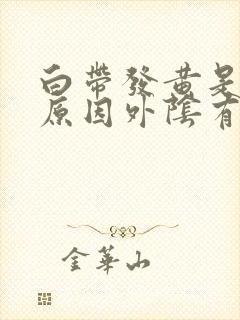 白帶發黃是
原因外陰有
金華山